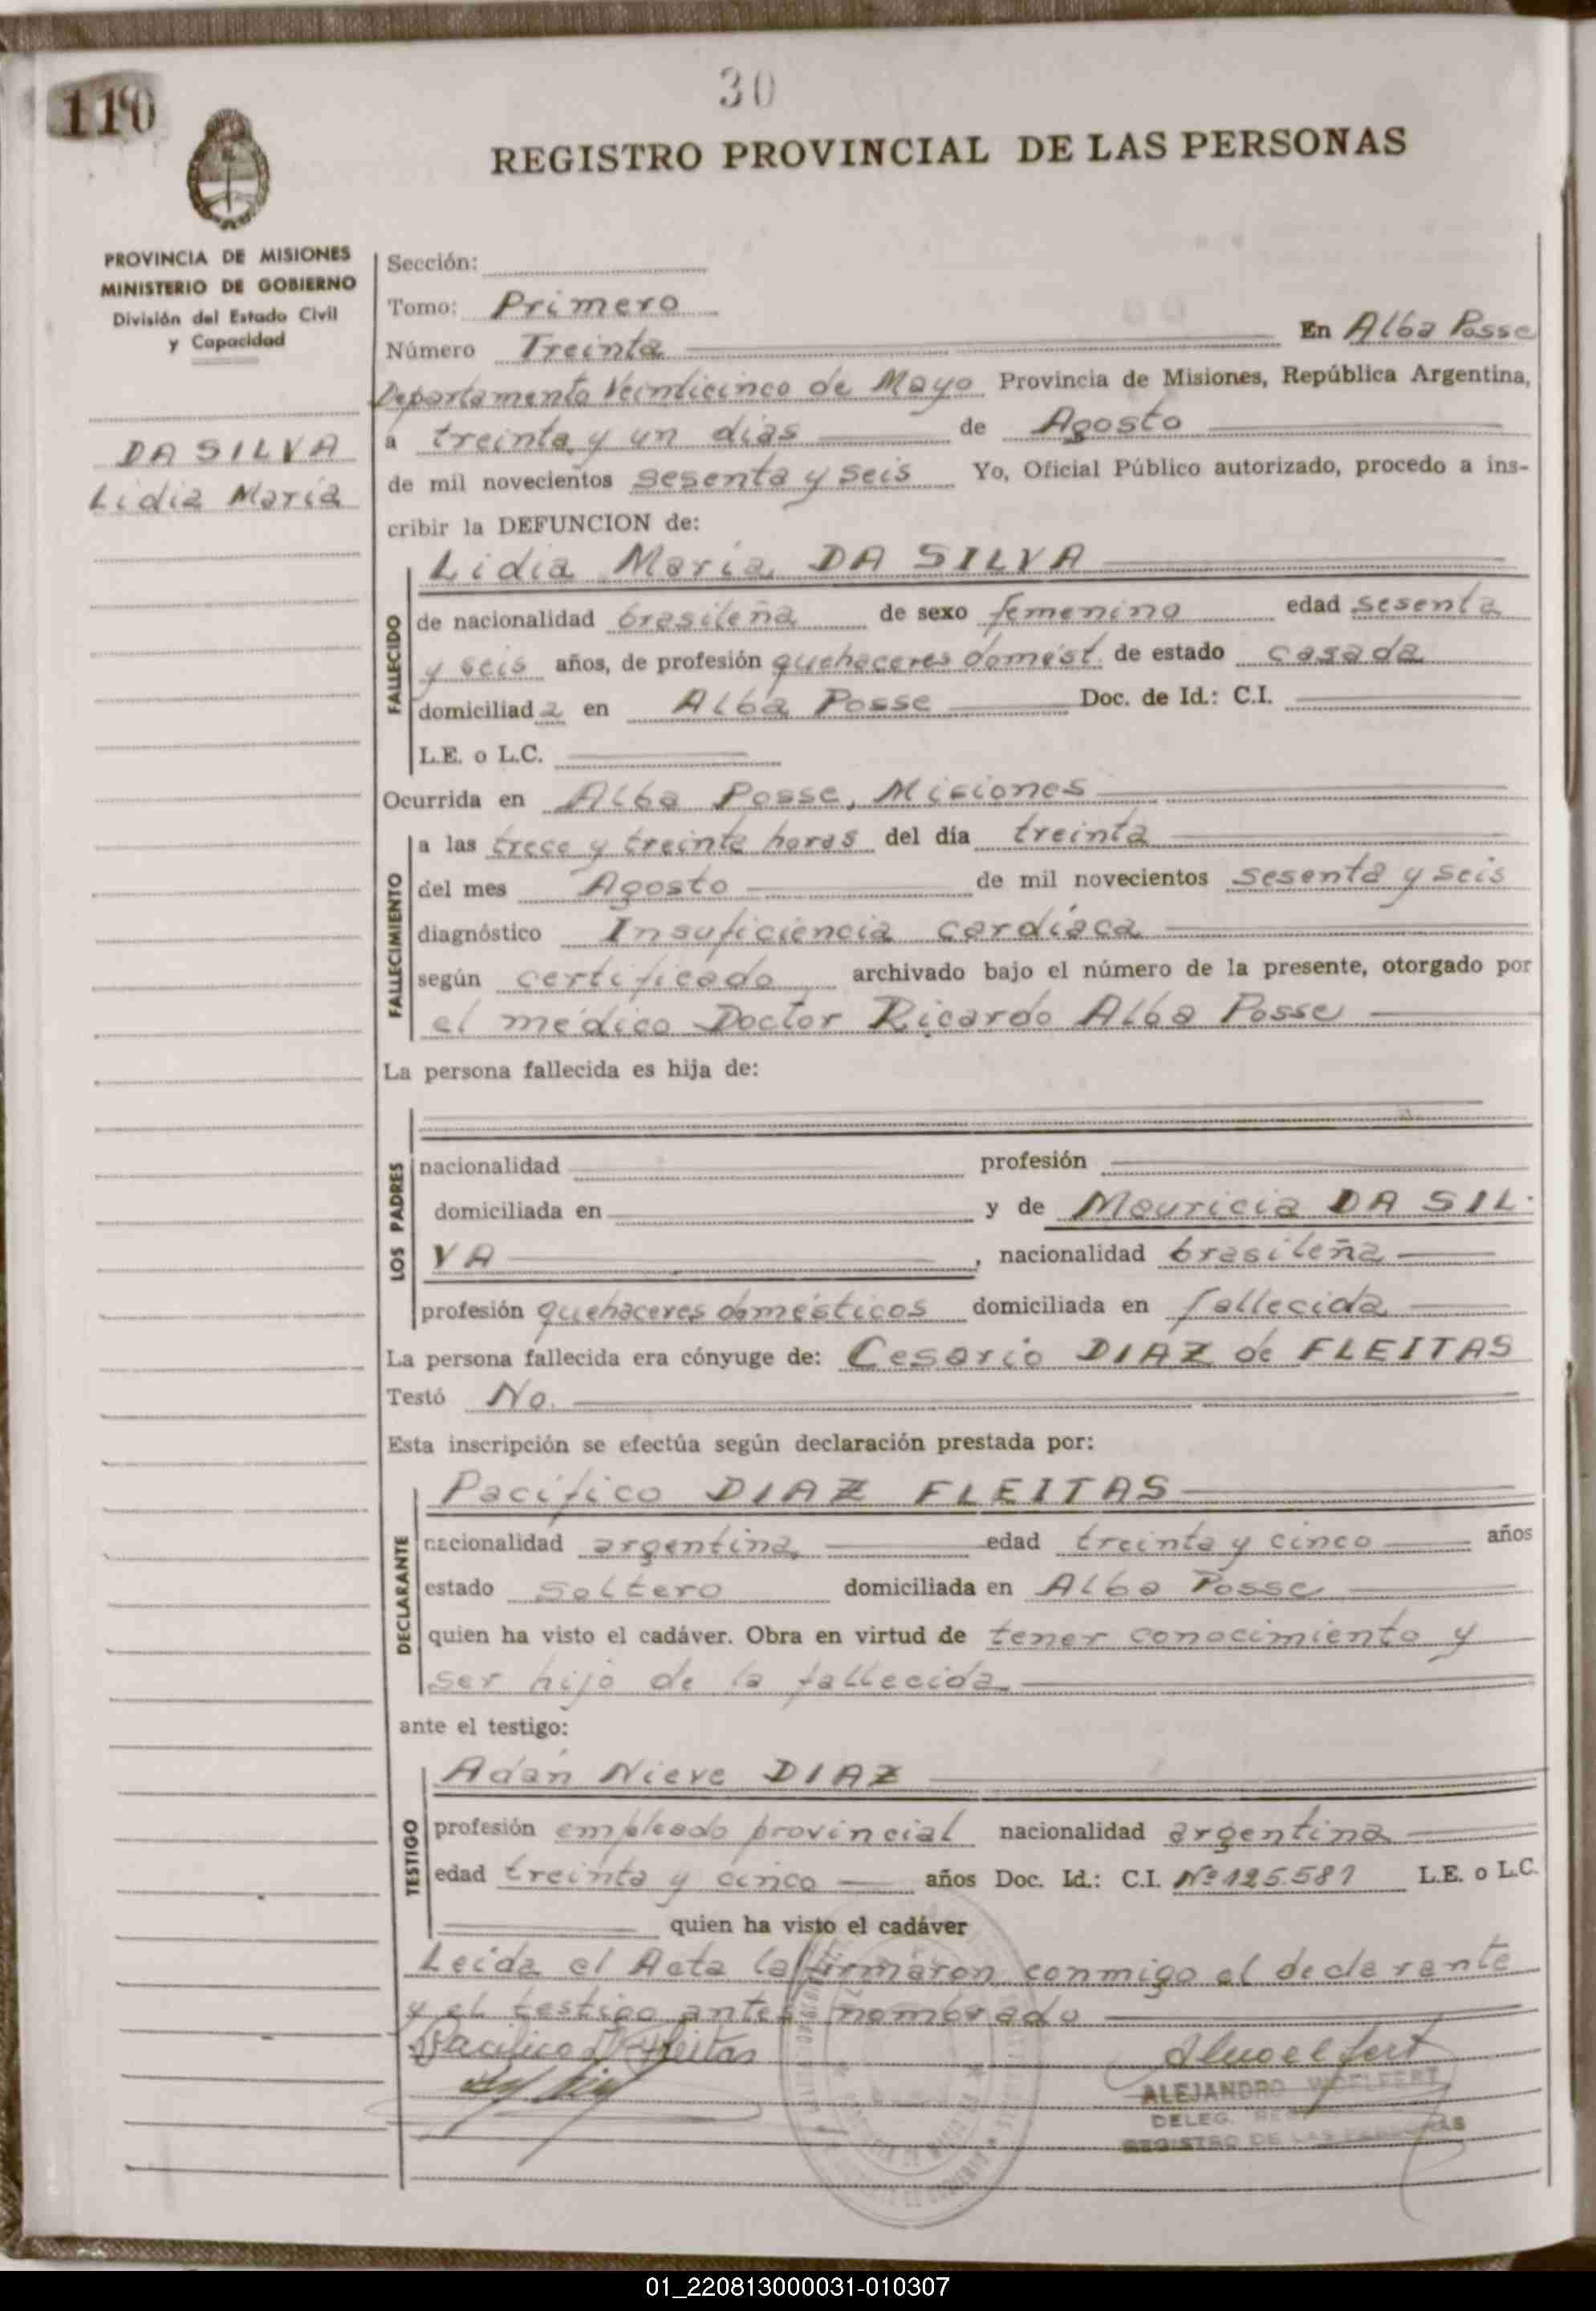 30
110
REGISTRO PROVINCIAL DE LAS PERSONAS
PROVINCIA DE MISIONES
MINISTERIO DE GOBIERNO
División del Estado Civil
y Capacidad
DA SILVA
Lidia María
Sección:
Tomo: Primero
Número Treinta En Alba Posse
Departamento Veinticinco de Mayo Provincia de Misiones, República Argentina,
a treinta y un dias de Agosto
de mil novecientos sesenta y seis Yo, Oficial Público autorizado, procedo a ins-
cribir la DEFUNCION de:
Lidia María DA SILVA
FALLECIDO
de nacionalidad brasileña de sexo femenino edad sesenta
y seis años, de profesión quehaceres domést. de estado casada
domiciliada en Alba Posse Doc. de Id.: C.I.
L.E. o L.C.
Ocurrida en Alba Posse, Misiones
FALLECIMIENTO
a las trece y treinta horas del día treinta
del mes Agosto de mil novecientos sesenta y seis
diagnóstico Insuficiencia cardíaca
según certificado archivado bajo el número de la presente, otorgado por
el médico Doctor Ricardo Alba Posse
La persona fallecida es hija de:
LOS PADRES
nacionalidad profesión
domiciliada en y de Mauricia DA SIL-
VA , nacionalidad brasileña
profesión quehaceres domésticos domiciliada en fallecida
La persona fallecida era cónyuge de: Cesario DIAZ de FLEITAS
Testó No.
Esta inscripción se efectúa según declaración prestada por:
Pacífico DIAZ FLEITAS
DECLARANTE
nacionalidad argentina edad treinta y cinco años
estado soltero domiciliada en Alba Posse
quien ha visto el cadáver. Obra en virtud de tener conocimiento y
ser hijo de la fallecida
ante el testigo:
Adán Nieve DIAZ
TESTIGO
profesión empleado provincial nacionalidad argentina
edad treinta y cinco años Doc. Id.: C.I. Nº 125.581 L.E. o L.C.
quien ha visto el cadáver
Leida el Acta la firmaron conmigo el declarante
y el testigo antes nombrado
Pacífico D Fleitas
ALEJANDRO WOELFERT
DELEG.
REGISTRO DE LAS PERSONAS
01_220813000031-010307